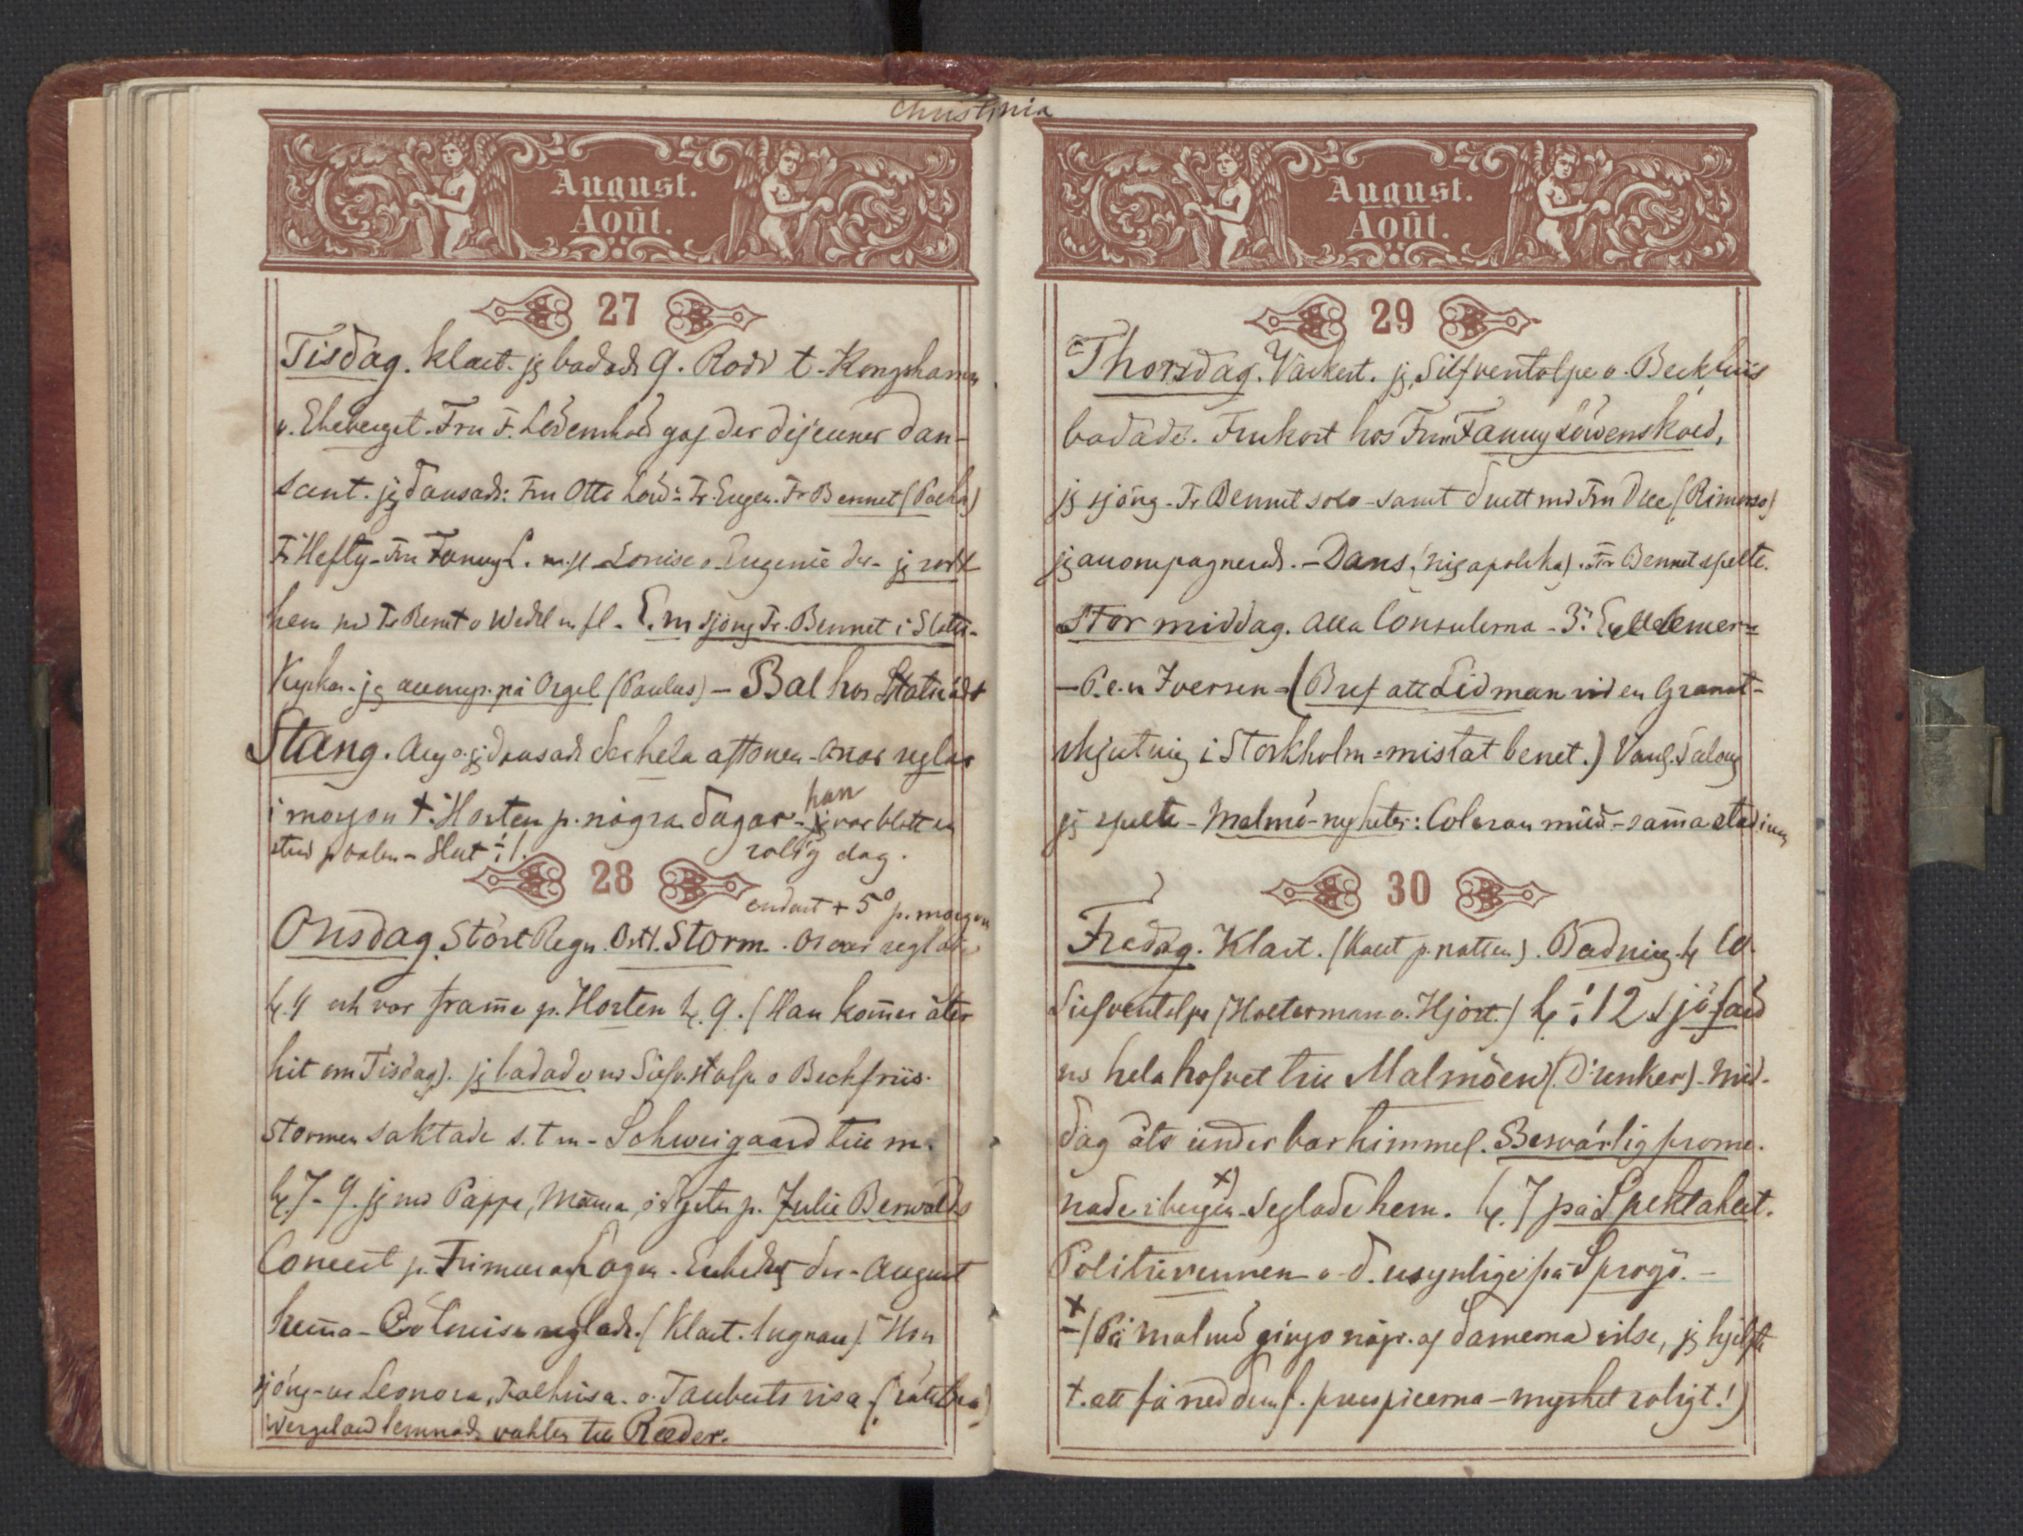 Christinia
August.
Août.
27
Tisdag. klart. jg badade 9. Rodd t. Kongshamn
o. Ekeberget. Fru F. Löwenskold gaf der dejeuner dan-
sant. jg dansade: Fru Otto Löw: Fr. Eugen. Fr Bennet (Polka)
Fr Hefty - Fru Fanny L. m. fl. Louise o Eugenie der - jg rodt
hem md Fr Bennet o Wedel m fl - E. m sjöng Fr. Bennet i Slotts-
Kyrkan - jg accomp. på Orgel (Paulus) - Bal hos Statsrådet
Stang. Aug o. jg dansade der hela aftonen - Oscar seglar
i morgon t. Horten p. några dagar - han var blott en
stund p balen - Slut ½ 1. rolig dag.
28
endast + 5° p. morgon
Onsdag. Stört Regn. Ostl. Storm. Oscar seglade
kl. 4 och var framme p. Horten kl. 9. (Han kommer åter
hit om Tisdag). jg badade md Silfverstolpe o Beckfriis.
Stormen saktade s. t m - Schweigaard till m.
kl. 7 - 9. jg md Pappa, Mamma, o Dgtn p. Julie Berwalds
Concert p. Frimurar Logen - der - August
hemma - Louise seglade. (Klart. lugnare). Hon
sjöng - ur Leonora, o. Tauberts visa. (rätt bra)
Wergeland lemnade vakten till Ræder.
August.
Août.
29
Thorsdag. Vackert. jg, Silfverstolpe o. Beckfriis
badade. Frukost hos Fru Fanny Löwenskold,
jg sjöng - Fr Bennet solo - samt duett md Fru Due (Rimorso)
jg accompagnerade. - Dans, (nigapolska). Fr Bennet spelte.
Stor middag. Alla Consulerna - 3:
- Iversen - (Bref att Lidman vid en Granat-
skjutning i Stockholm = mistat benet.) Vanl. Salong
jg spelte - Malmö - nyheter: Coleran - samma stadium
30
Fredag. Klart. (Kallt p. natten). Badning kl 10.
Silfverstolpe (Holterman o. Hjort.) kl. ½ 12 sjöfärd
md hela hofvet till Malmöen (Dunker). Mid-
dag åts under bar himmel. Besvärlig prome-
nade i bergen x) Seglade hem. kl. 7 på Spektaklet.
Politivennen o d. usynlige på Sprogö. -
x (På Malmö gingo någr. af damerna vilse, jg hjelpte
t. att få ned dem f. precipicerna - mycket roligt!)